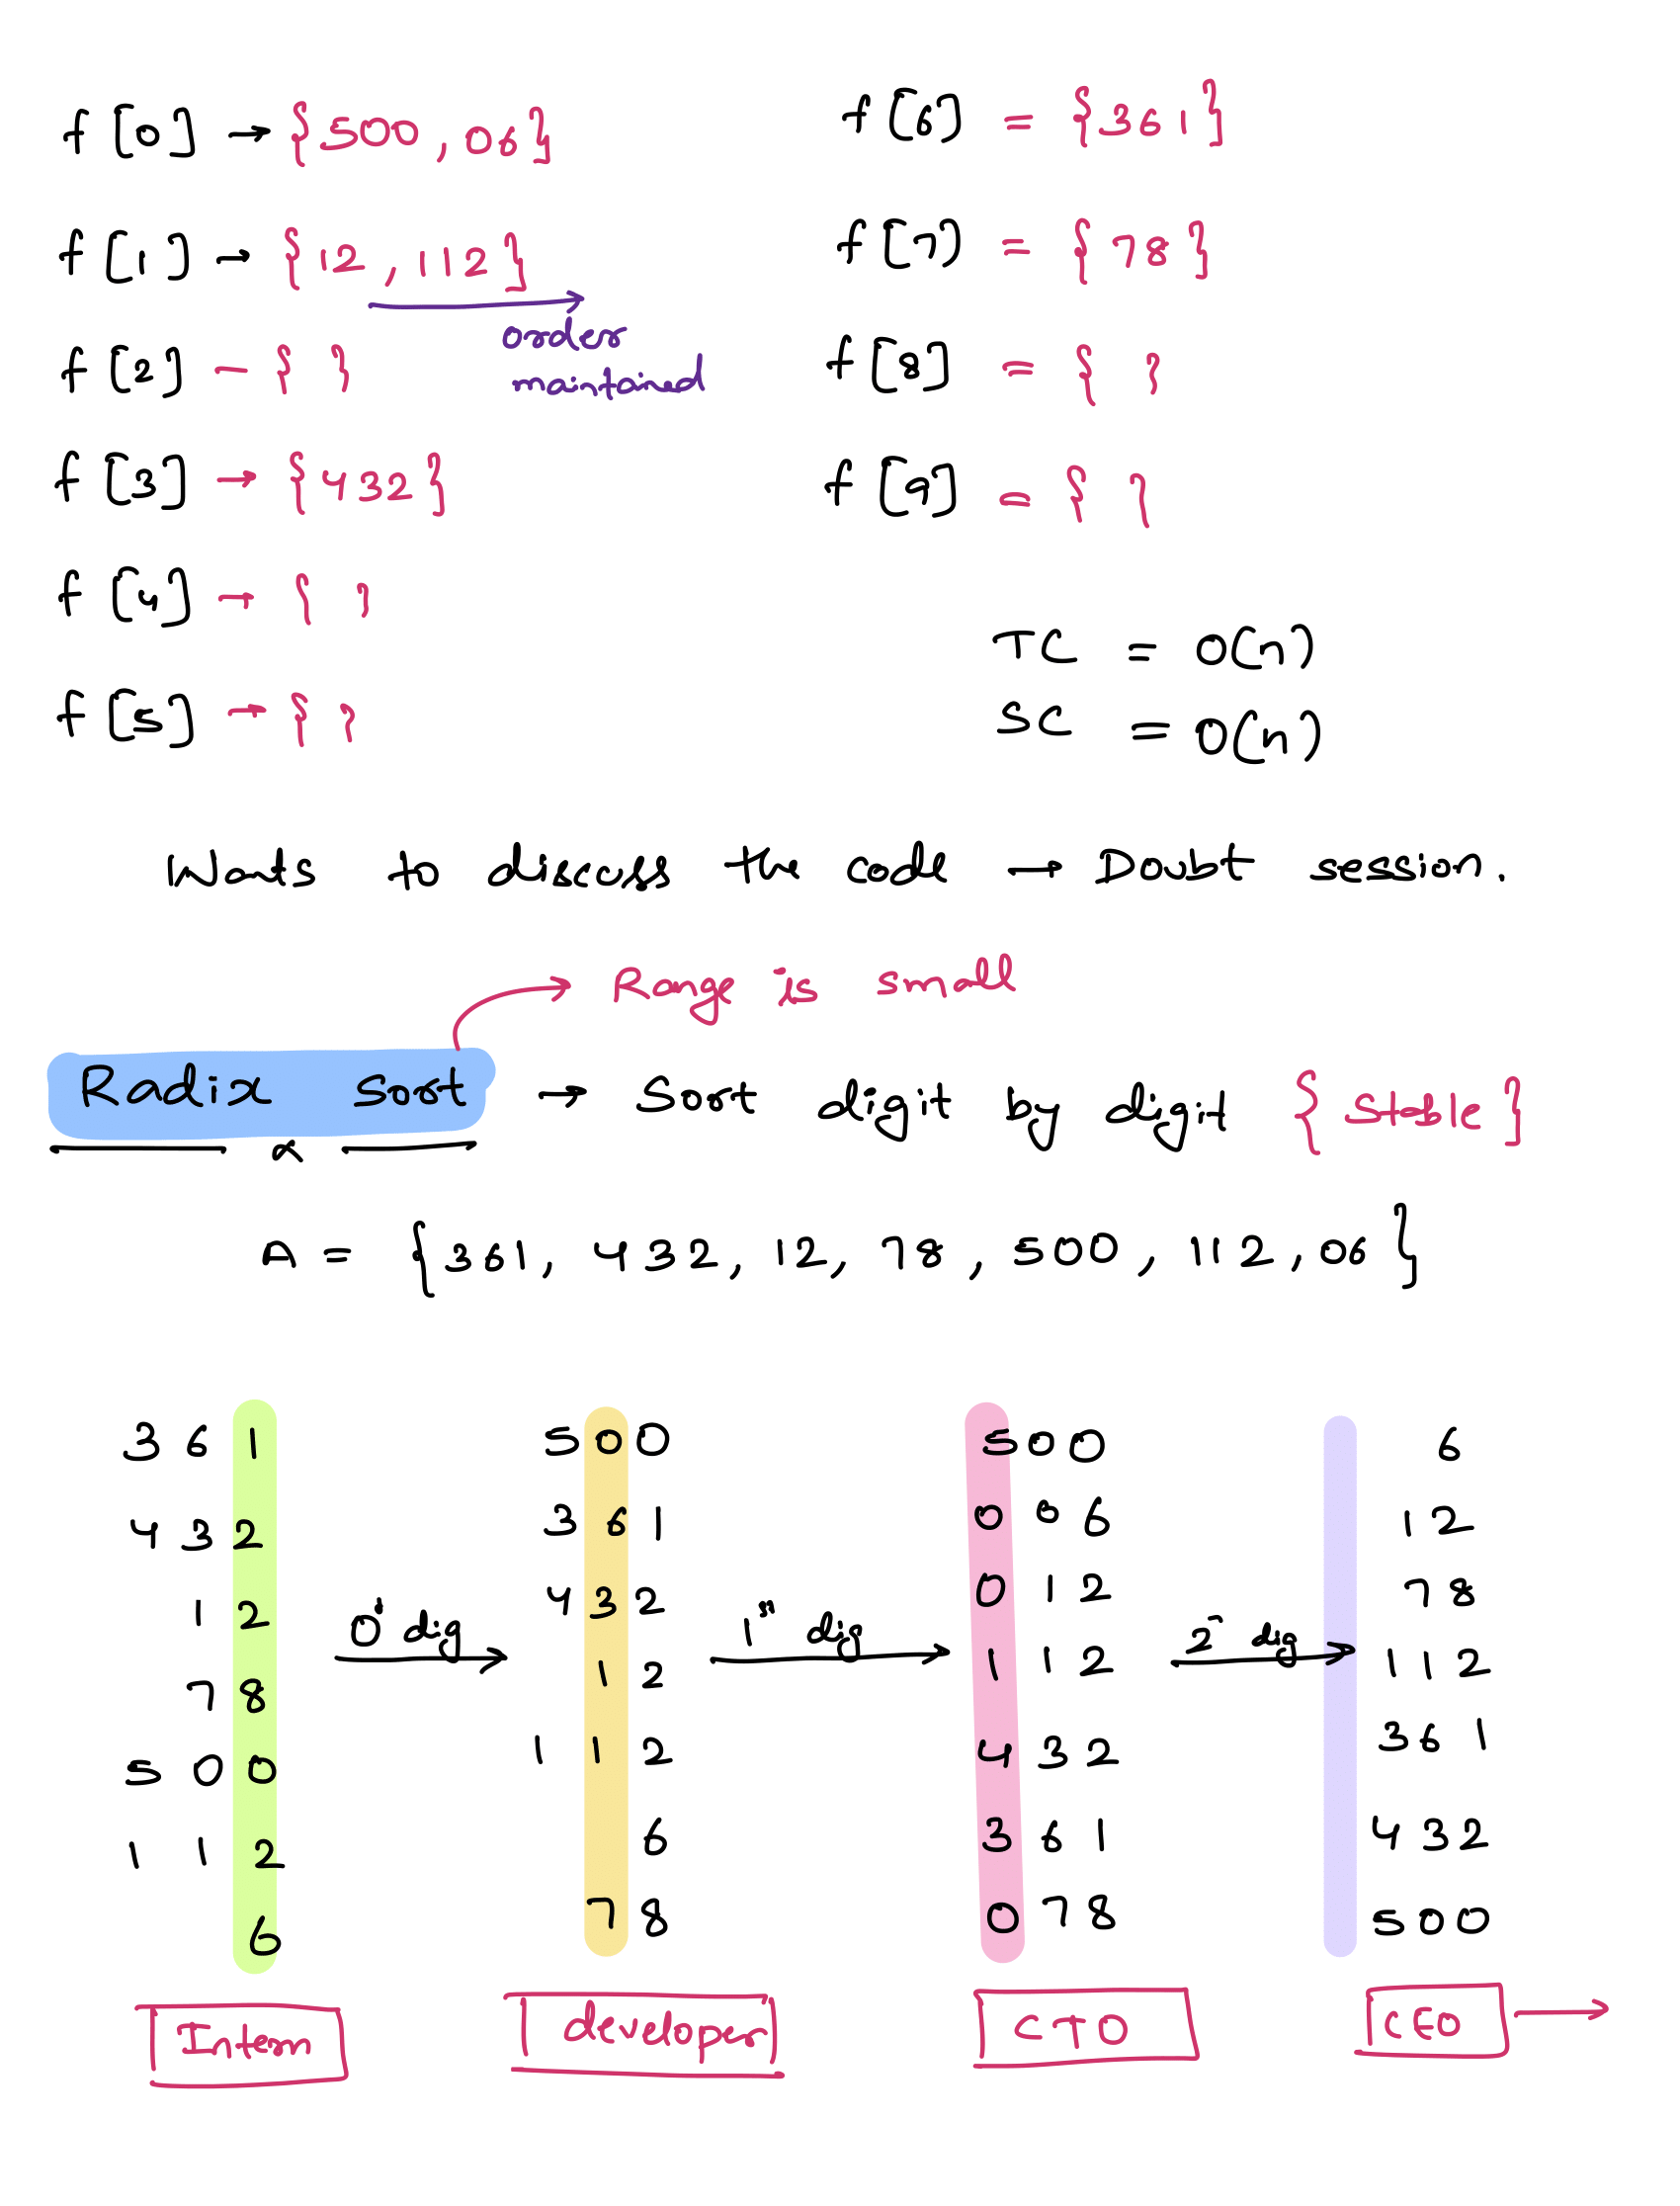 f[0] → {500, 06}
f[1] → {12, 112}
order
maintained
f[2] - { }
f[3] → {432}
f[4] → { }
f[5] → { }
f[6] = {361}
f[7] = {78}
f[8] = { }
f[9] = { }
TC = O(n)
SC = O(n)
Wants to discuss the code → Doubt session.
Range is small
Radix Sort → Sort digit by digit {stable}
A = {361, 432, 12, 78, 500, 112, 06}
3 6 1
4 3 2
1 2
7 8
5 0 0
1 1 2
6
0 dig
5 0 0
3 6 1
4 3 2
1 2
1 1 2
6
7 8
1st dig
5 0 0
0 0 6
0 1 2
1 1 2
4 3 2
3 6 1
0 7 8
2 dig
6
1 2
7 8
1 1 2
3 6 1
4 3 2
5 0 0
Intern
developer
CTO
CEO